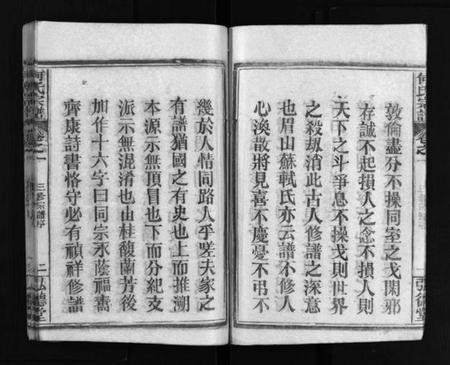 何氏宗譜
卷之一
敦倫盡分不操同室之戈閑邪
存誠不起損人之念不損人則
天下之斗爭息不操戈則世界
之殺刼消此古人修譜之深意
也眉山蘇軾氏亦云譜不修人
心渙散將見喜不慶憂不弔不
弘德堂
何氏宗譜
卷之一
三修宗譜序
二
弘德堂
幾於人情同路人乎嗟夫家之
有譜猶國之有史也上而推溯
本源示無頂冒也下而分紀支
派示無混淆也由桂馥蘭芳後
加作十六字曰同宗永蔭福裔
齊康詩書恪守必有禎祥修譜